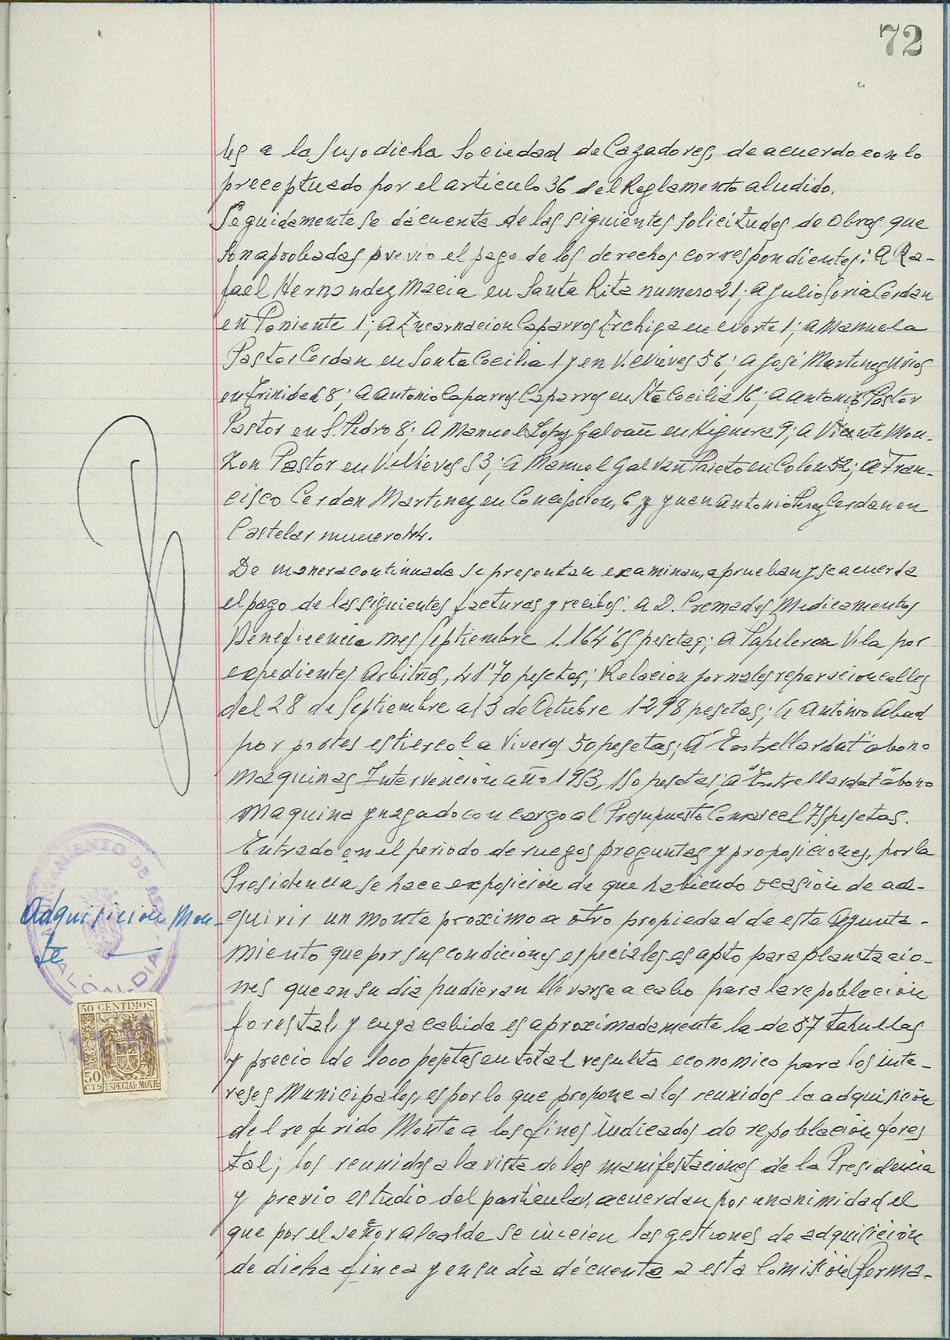 72
les a la susodicha Sociedad de Cazadores, de acuerdo con lo
preceptuado por el articulo 36 del Reglamento aludido.
Seguidamente se da cuenta de las siguientes solicitudes de obras que
son aprobadas previo el pago de los derechos correspondientes: a Ra-
fael Hernandez Macia en Santa Rita numero 21; a Julio Soria Cerdan
en Poniente 1; a Encarnacion Caparros en Norte 1; a Manuela
Pastor Cerdan en Santa Cecilia 1 y en V. Nieves 56; a José Martinez
en Trinidad 8; a Antonio Caparros Caparros en Sta Cecilia 16; a Antonio Pastor
Pastor en S. Pedro 8; a Manuel Lopez Galvañ en Higuera 9; a Vicente Mon-
zon Pastor en V. Nieves 53; a Manuel Galvañ Prieto en Colon 52; a Fran-
cisco Cerdan Martinez en Concepcion, 6, y Juan Antonio Perez Cerdan en
Castelar numero 44.
De manera continuada se presentan examinan, aprueban y se acuerda
el pago de las siguientes facturas y recibos: a D. Cremades, Medicamentos
Beneficencia mes Septiembre 1.164'65 pesetas; a Papeleria Vila, por
expedientes Arbitrios, 41'70 pesetas; Relacion jornales reparacion calles
del 28 de Septiembre al 3 de Octubre 1298 pesetas; a Antonio Abad
por portes estiercol a Viveros 50 pesetas; a abono
maquinas Intervención año 1953, 150 pesetas; a abono
maquina Juzgado con cargo al Presupuesto Comarcal 75 pesetas.
Entrado en el periodo de ruegos preguntas y proposiciones, por la
Presidencia se hace exposición de que habiendo ocasión de ad-
Adquisición Mon-
te
quirir un monte proximo a otro propiedad de este Ayunta-
miento que por sus condiciones especiales es apto para plantacio-
nes que en su dia pudieran llevarse a cabo para la repoblación
forestal, y cuya cabida es aproximadamente la de 57 tahullas
y precio de 1000 pesetas en total resulta economico para los inte-
reses Municipales, es por lo que propone a los reunidos la adquisición
del referido Monte a los fines indicados de repoblación fores
tal; los reunidos a la vista de las manifestaciones de la Presidencia
y previo estudio del particular, acuerdan por unanimidad el
que por el señor alcalde se inicien las gestiones de adquisición
de dicha finca y en su dia dé cuenta a esta Comisión Perma-
AYUNTAMIENTO DE
ALCALDIA
50 CENTIMOS
50
CTS ESPECIAL MOVIL